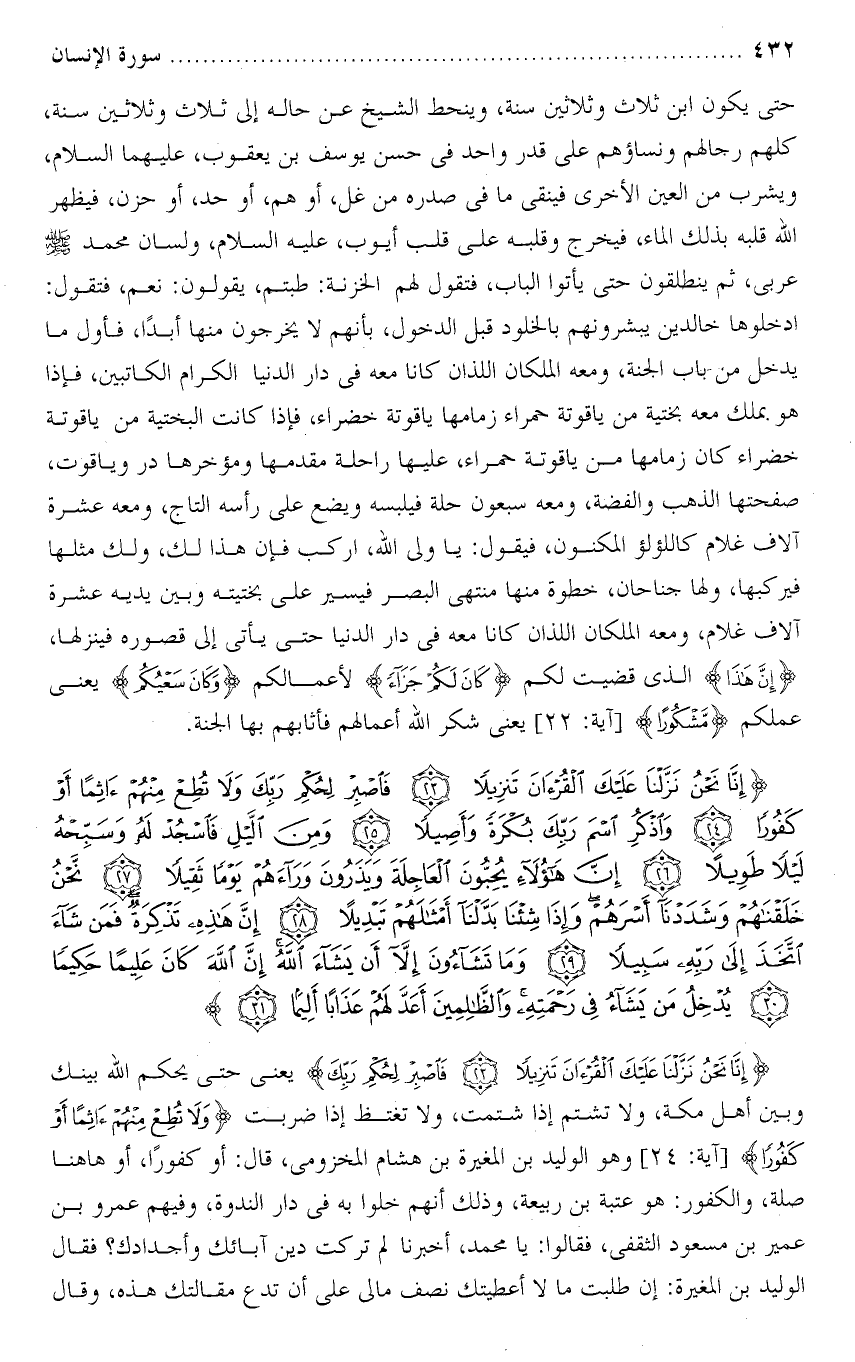 ٤٣٢ ........................................................................ سورة الإنسان
حتى يكون ابن ثلاث وثلاثين سنة، وينحط الشيخ عن حاله إلى ثلاث وثلاثين سنة،
كلهم رجالهم ونساؤهم على قدر واحد فى حسن يوسف بن يعقوب، عليهما السلام،
ويشرب من العين الأخرى فينقى ما فى صدره من غل، أو هم، أو حد، أو حزن، فيظهر
الله قلبه بذلك الماء، فيخرج وقلبه على قلب أيوب، عليه السلام، ولسان محمد ﷺ
عربى، ثم ينطلقون حتى يأتوا الباب، فتقول لهم الخزنة: طبتم، يقولون: نعم، فتقول:
ادخلوها خالدين يبشرونهم بالخلود قبل الدخول، بأنهم لا يخرجون منها أبدًا، فأول ما
يدخل من باب الجنة، ومعه الملكان اللذان كانا معه فى دار الدنيا الكرام الكاتبين، فإذا
هو بملك معه بختية من ياقوتة حمراء زمامها ياقوتة خضراء، فإذا كانت البختية من ياقوتة
خضراء كان زمامها من ياقوتة حمراء، عليها راحلة مقدمها ومؤخرها در وياقوت،
صفحتها الذهب والفضة، ومعه سبعون حلة فيلبسه ويضع على رأسه التاج، ومعه عشرة
آلاف غلام كاللؤلؤ المكنون، فيقول: يا ولى الله، اركب فإن هذا لك، ولك مثلها
فيركبها، ولها جناحان، خطوة منها منتهى البصر فيسير على بختيته وبين يديه عشرة
آلاف غلام، ومعه الملكان اللذان كانا معه فى دار الدنيا حتى يأتى إلى قصوره فينزلها،
﴿إِنَّ هَٰذَا﴾ الذى قضيت لكم ﴿كَانَ لَكُمْ جَزَآءً﴾ لأعمالكم ﴿وَكَانَ سَعْيُكُم﴾ يعنى
عملكم ﴿مَّشْكُورًا﴾ [آية: ٢٢] يعنى شكر الله أعمالهم فأثابهم بها الجنة.
﴿إِنَّا نَحْنُ نَزَّلْنَا عَلَيْكَ ٱلْقُرْءَانَ تَنزِيلًا ٢٣ فَٱصْبِرْ لِحُكْمِ رَبِّكَ وَلَا تُطِعْ مِنْهُمْ ءَاثِمًا أَوْ
كَفُورًا ٢٤ وَٱذْكُرِ ٱسْمَ رَبِّكَ بُكْرَةً وَأَصِيلًا ٢٥ وَمِنَ ٱلَّيْلِ فَٱسْجُدْ لَهُۥ وَسَبِّحْهُ
لَيْلًا طَوِيلًا ٢٦ إِنَّ هَٰٓؤُلَآءِ يُحِبُّونَ ٱلْعَاجِلَةَ وَيَذَرُونَ وَرَآءَهُمْ يَوْمًا ثَقِيلًا ٢٧ نَّحْنُ
خَلَقْنَٰهُمْ وَشَدَدْنَآ أَسْرَهُمْ ۖ وَإِذَا شِئْنَا بَدَّلْنَآ أَمْثَٰلَهُمْ تَبْدِيلًا ٢٨ إِنَّ هَٰذِهِۦ تَذْكِرَةٌ ۖ فَمَن شَآءَ
ٱتَّخَذَ إِلَىٰ رَبِّهِۦ سَبِيلًا ٢٩ وَمَا تَشَآءُونَ إِلَّآ أَن يَشَآءَ ٱللَّهُ ۚ إِنَّ ٱللَّهَ كَانَ عَلِيمًا حَكِيمًا
٣٠ يُدْخِلُ مَن يَشَآءُ فِى رَحْمَتِهِۦ ۚ وَٱلظَّٰلِمِينَ أَعَدَّ لَهُمْ عَذَابًا أَلِيمًا ٣١﴾
﴿إِنَّا نَحْنُ نَزَّلْنَا عَلَيْكَ ٱلْقُرْءَانَ تَنزِيلًا ٢٣ فَٱصْبِرْ لِحُكْمِ رَبِّكَ﴾ يعنى حتى يحكم الله بينك
وبين أهل مكة، ولا تشتم إذا شتمت، ولا تغتظ إذا ضربت ﴿وَلَا تُطِعْ مِنْهُمْ ءَاثِمًا أَوْ
كَفُورًا﴾ [آية: ٢٤] وهو الوليد بن المغيرة بن هشام المخزومى، قال: أو كفورًا، أو هاهنا
صلة، والكفور: هو عتبة بن ربيعة، وذلك أنهم خلوا به فى دار الندوة، وفيهم عمرو بن
عمير بن مسعود الثقفى، فقالوا: يا محمد، أخبرنا لم تركت دين آبائك وأجدادك؟ فقال
الوليد بن المغيرة: إن طلبت ما لا أعطيتك نصف مالى على أن تدع مقالتك هذه، وقال